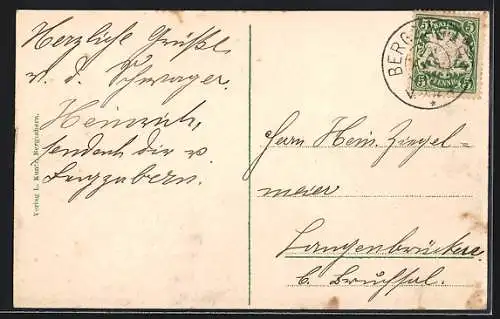 Herzliche Grüße
v. d. Schwager
Heinrich,
sendet dir v.
Bergzabern.
Verlag L. Kuntz, Bergzabern.
BERGZ
BAYERN
5 5
PFENNIG
Herrn Hein. Ziegel-
meier
Langenbrücken
b. Bruchsal.